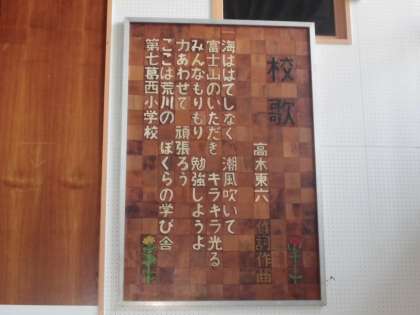 校歌
高木東六 作詞作曲
海ははてしなく 潮風吹いて
富士山のいただき キラキラ光る
みんなもりもり 勉強しようよ
力あわせて 頑張ろう
ここは荒川の ぼくらの学び舎
第七葛西小学校